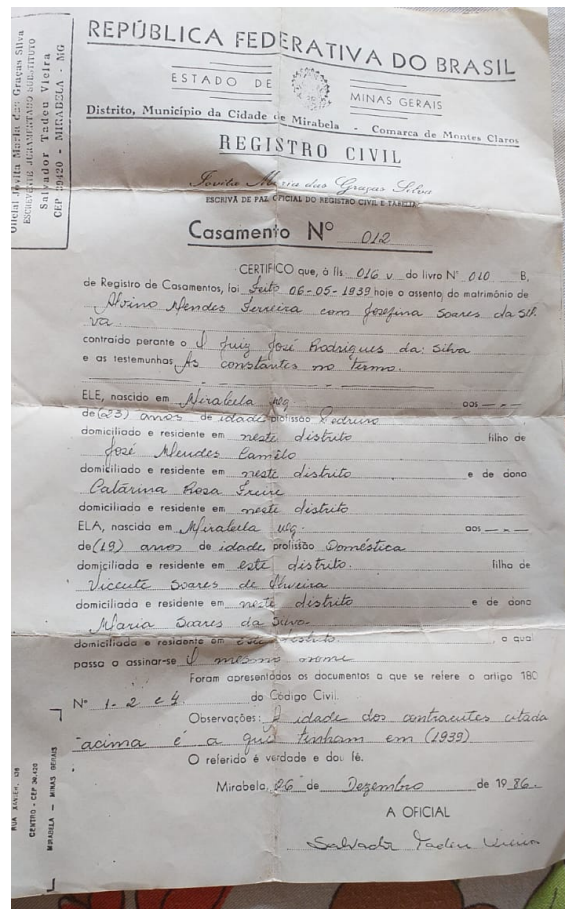 Oficial Jovita Maria das Graças Silva
ESCREVENTE JURAMENTADO SUBSTITUTO
Salvador Tadeu Vieira
CEP 39420 - MIRABELA - MG
REPÚBLICA FEDERATIVA DO BRASIL
ESTADO DE MINAS GERAIS
Distrito, Município da Cidade de Mirabela - Comarca de Montes Claros
REGISTRO CIVIL
Jovita Maria das Graças Silva
ESCRIVÃ DE PAZ OFICIAL DO REGISTRO CIVIL E TABELIÃ
Casamento Nº 012
CERTIFICO que, à fls 016 v do livro Nº 010 B,
de Registro de Casamentos, foi feito 06-05-1939 hoje o assento do matrimônio de
Alvino Mendes Ferreira com Josefina Soares da Sil
va
contraído perante o Juiz José Rodrigues da Silva
e as testemunhas As constantes no termo.
ELE, nascido em Mirabela mg. aos
de (23) anos de idade profissão Pedreiro
domiciliado e residente em neste distrito filho de
José Mendes Camêlo
domiciliado e residente em neste distrito e de dona
Catarina Rosa Freire
domiciliado e residente em neste distrito
ELA, nascida em Mirabela mg. aos
de (19) anos de idade profissão Doméstica
domiciliada e residente em este distrito. filha de
Vicente Soares de Oliveira
domiciliada e residente em neste distrito e de dona
Maria Soares da Silva
domiciliada e residente em este distrito, a qual
passa a assinar-se O mesmo nome
Foram apresentados os documentos a que se refere o artigo 180
Nº 1-2 e 4 do Código Civil.
Observações: A idade dos contraentes citada
acima é a que tinham em (1939)
O referido é verdade e dou fé.
Mirabela, 26 de Dezembro de 1986.
A OFICIAL
Salvador Tadeu Vieira
RUA XAVIER,
CENTRO - CEP 39.420
MIRABELA - MINAS GERAIS